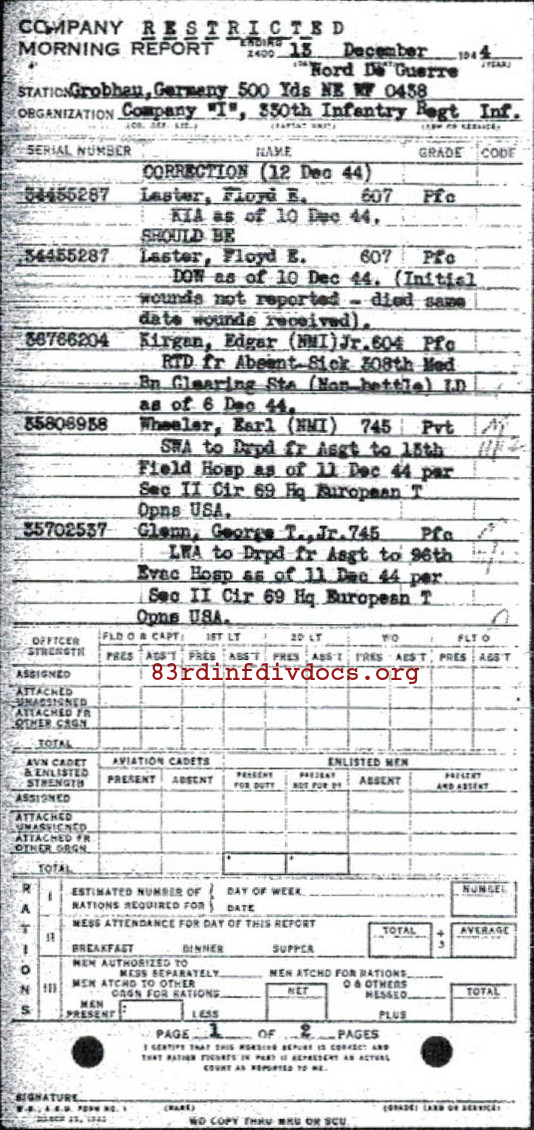 COMPANY RESTRICTED
MORNING REPORT ENDING 2400 13 December 1944
(YEAR)
"Nord De Guerre
STATION Grobhau, Germany 500 Yds NE WF 0438
ORGANIZATION Company "I", 330th Infantry Regt Inf.
SERIAL NUMBER NAME GRADE CODE
CORRECTION (12 Dec 44)
34455287 Laster, Floyd E. 607 Pfc
KIA as of 10 Dec 44.
SHOULD BE
34455287 Laster, Floyd E. 607 Pfc
DOW as of 10 Dec 44. (Initial
wounds not reported - died same
date wounds received).
36766204 Kirgan, Edgar (NMI)Jr.604 Pfc
RTD fr Absent-Sick 308th Med
Bn Clearing Sta (Non-battle) LD
as of 6 Dec 44.
35806938 Wheeler, Earl (NMI) 745 Pvt
SWA to Drpd fr Asgt to 15th
Field Hosp as of 11 Dec 44 per
Sec II Cir 69 Hq European T
Opns USA.
35702537 Glenn, George T.,Jr.745 Pfc
LWA to Drpd fr Asgt to 96th
Evac Hosp as of 11 Dec 44 per
Sec II Cir 69 Hq European T
Opns USA.
OFFICER STRENGTH FLD O & CAPT 1ST LT 2D LT WO FLT O
PRES ABS'T PRES ABS'T PRES ABS'T PRES ABS'T PRES ABS'T
ASSIGNED
83rdinfdivdocs.org
ATTACHED UNASSIGNED
ATTACHED FR OTHER ORGN
TOTAL
AVN CADET & ENLISTED STRENGTH AVIATION CADETS ENLISTED MEN
PRESENT ABSENT PRESENT FOR DUTY PRESENT NOT FOR DY ABSENT PRESENT AND ABSENT
ASSIGNED
ATTACHED UNASSIGNED
ATTACHED FR OTHER ORGN
TOTAL
RATIONS
I ESTIMATED NUMBER OF RATIONS REQUIRED FOR DAY OF WEEK DATE NUMBER
II MESS ATTENDANCE FOR DAY OF THIS REPORT TOTAL ÷ 3 AVERAGE
BREAKFAST DINNER SUPPER
III MEN AUTHORIZED TO MESS SEPARATELY MEN ATCHD FOR RATIONS
MEN ATCHD TO OTHER ORGN FOR RATIONS NET O & OTHERS MESSED TOTAL
MEN PRESENT LESS PLUS
PAGE 1 OF 2 PAGES
I CERTIFY THAT THIS MORNING REPORT IS CORRECT AND
THAT RATION FIGURES IN PART II REPRESENT AN ACTUAL
COUNT AS REPORTED TO ME.
SIGNATURE
W.D., A.G.O. FORM NO. 1 (NAME) (GRADE) (ARM OR SERVICE)
WD COPY THRU MRU OR SCU